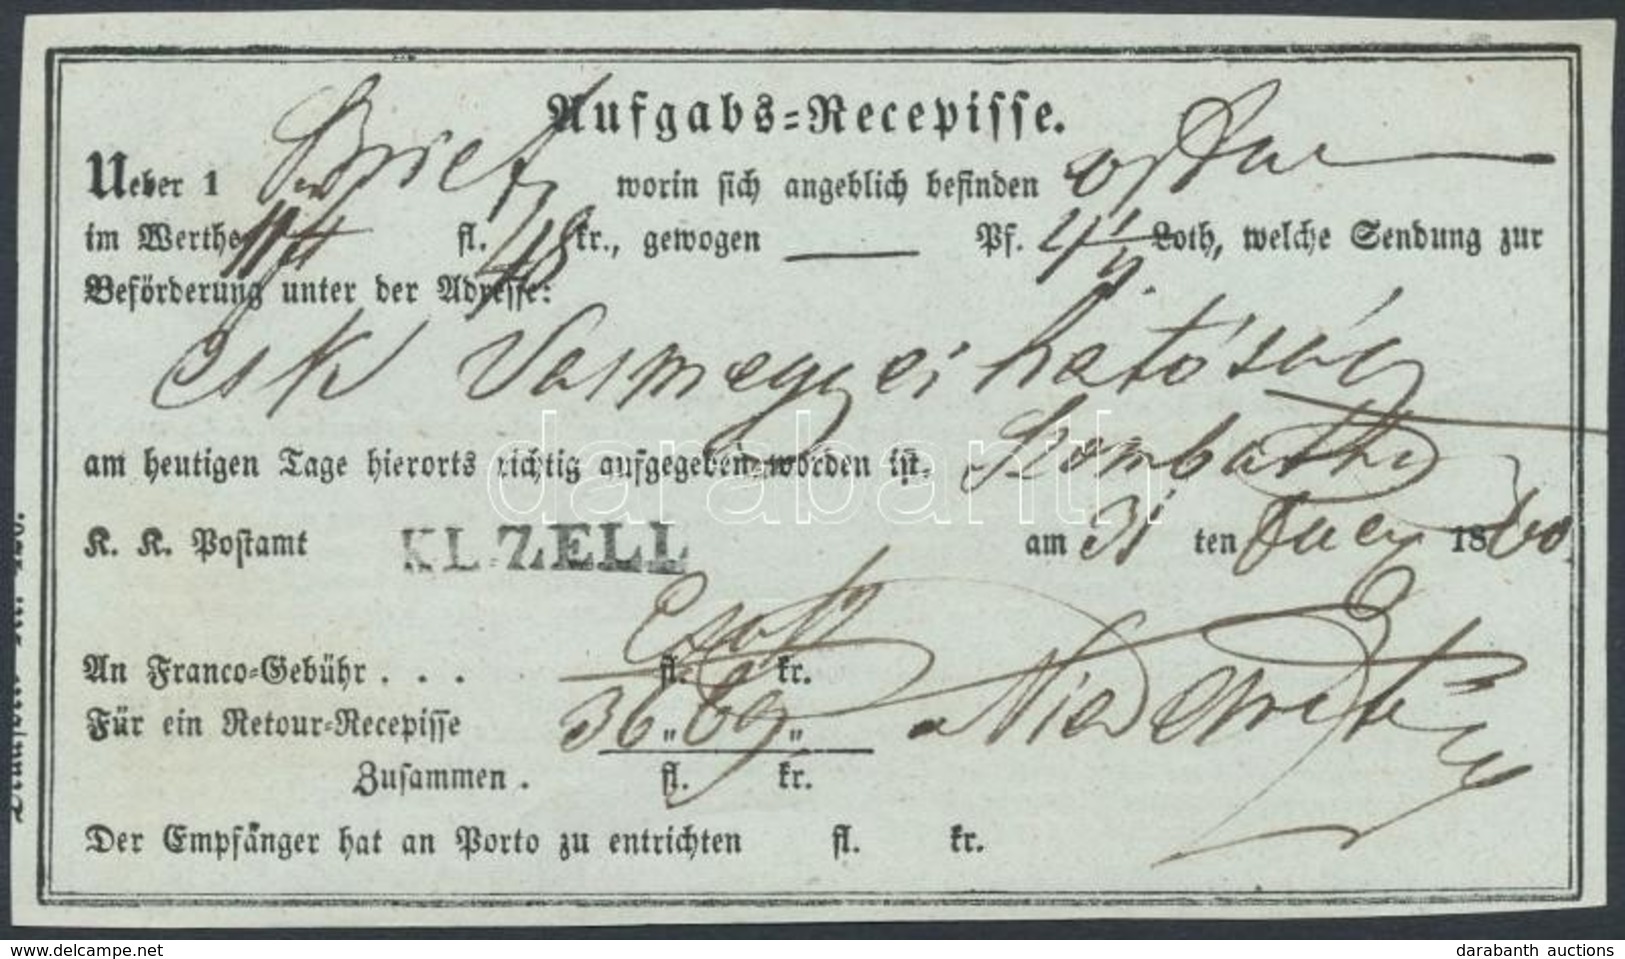 Aufgabs=Recepisse.
Ueber 1 Brief worin sich angeblich befinden
im Werthe 11 fl. 48 kr., gewogen — Pf. 4 Loth, welche Sendung zur
Beförderung unter der Adresse:
Csk Vasmegyei hatóság
am heutigen Tage hierorts richtig aufgegeben worden ist. Szombathe
K. K. Postamt KL. ZELL am 31 ten 1860
An Franco=Gebühr . . . fl. kr.
Für ein Retour=Recepisse 36 „ „
Zusammen . fl. kr.
Der Empfänger hat an Porto zu entrichten fl. kr.
darabanth
delcampe.net
darabanth auctions